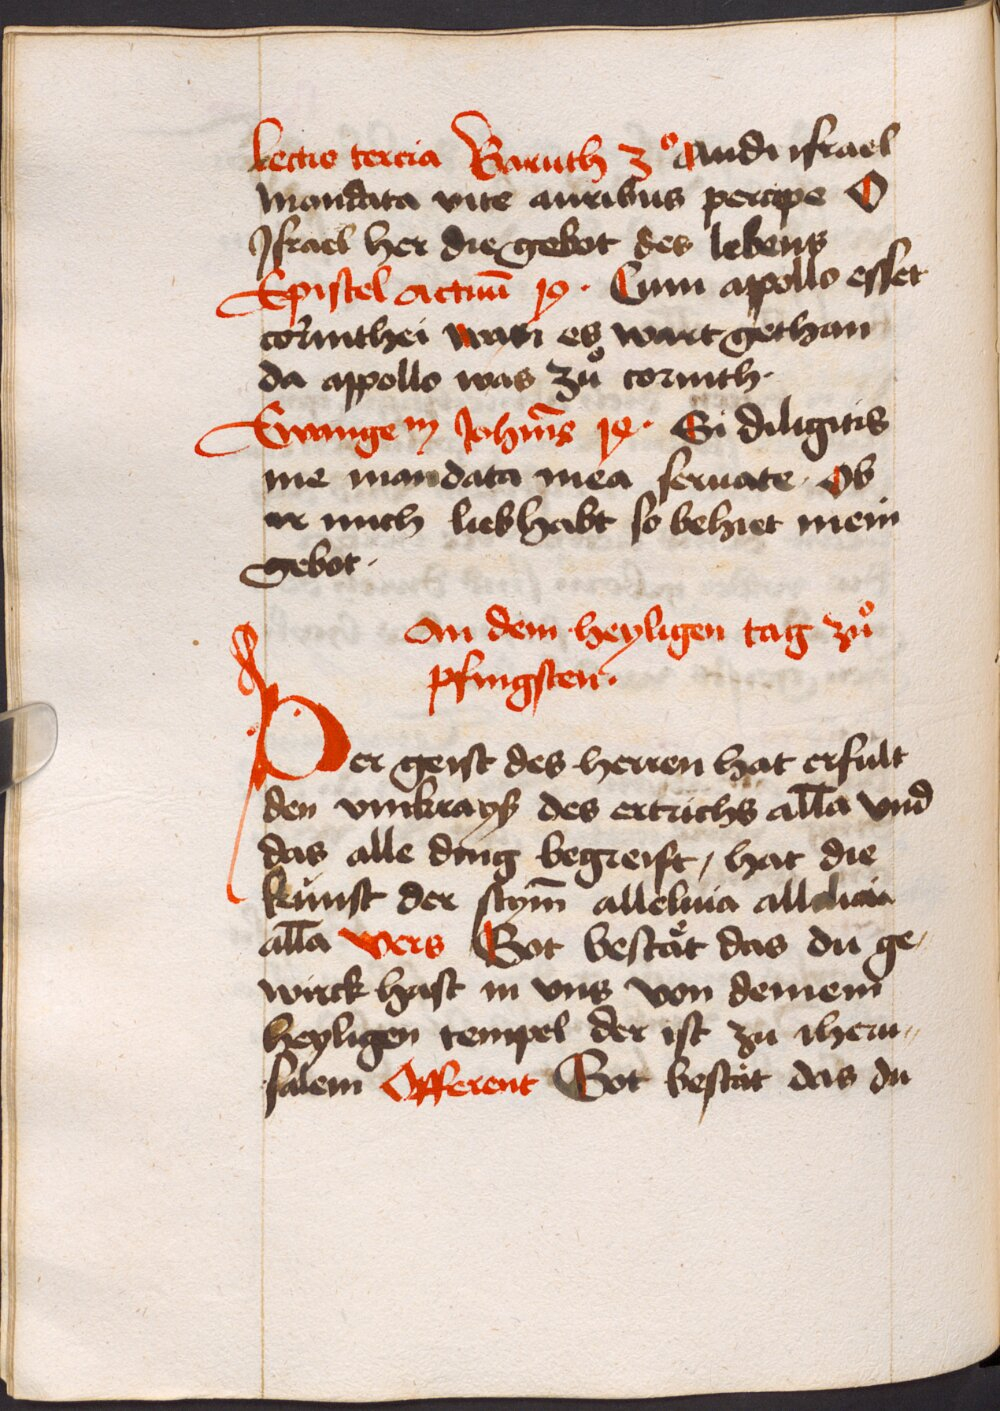 Lectio tercia Baruth 3° Audi israel
mandata vite auribus percipe O
Israel her die gebot des lebens
Epistel actuū 19 · Cum appollo esset
corinthei wan es wart gethan
da appollo was zuͦ corinth·
Ewange m Johan̄s 14 · Si diligitis
me mandata mea seruate · Ob
ir mich liebhabt so behiet mein
gebot ·
An dem heyligen tag zuͦ
pfingsten·
Der geist des herren hat erfult
den vmkrayß des ertrichs all̄a vnd
das alle ding begreift / hat die
kunst der stym̄ alleluia alleluia
all̄a Vers Got bestaͤt das du ge⸗
wirck hast in vns von deinem
heyligen tempel der ist zu iheru⸗
salem Offerent Got bestaͤt das du